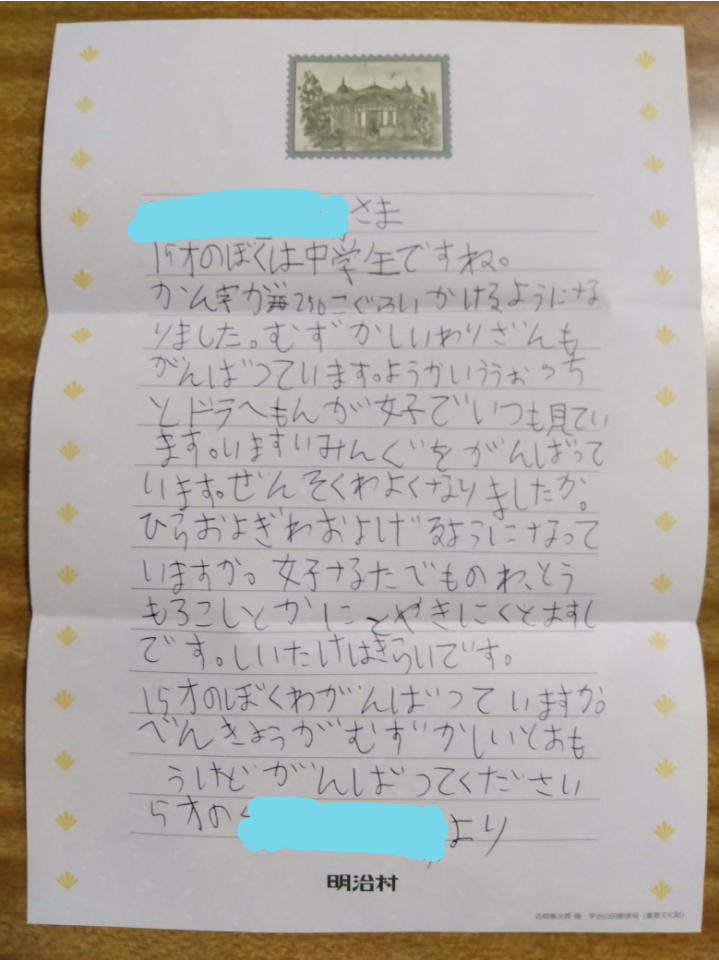 さま
15才のぼくは中学生ですね。
かん字が毎250こぐらいかけるようにな
りました。むずかしいわりざんも
がんばっています。ようかいうぉっち
とドラへもんが女子でいつも見てい
ます。いますいみんぐをがんばって
います。ぜんそくわよくなりましたか。
ひらおよぎわおよげるようになって
いますか。女子なたべものわ、とう
もろこしとかにとやきにくとおすし
です。しいたけはきらいです。
15才のぼくわがんばっていますか。
べんきょうがむずかしいとおも
うけどがんばってください
5才の より
明治村
宇治山田郵便局(重要文化財)